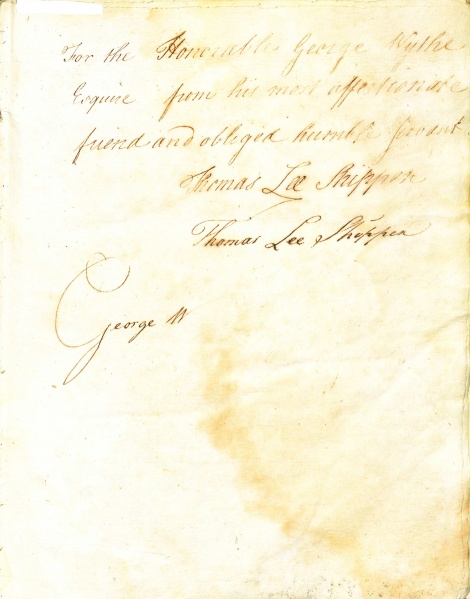 For the Honorable George Wythe
Esquire from his most affectionate
friend and obliged humble servant
Thomas Lee Shippen
Thomas Lee Shippen
George W